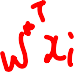 w*ᵀxi